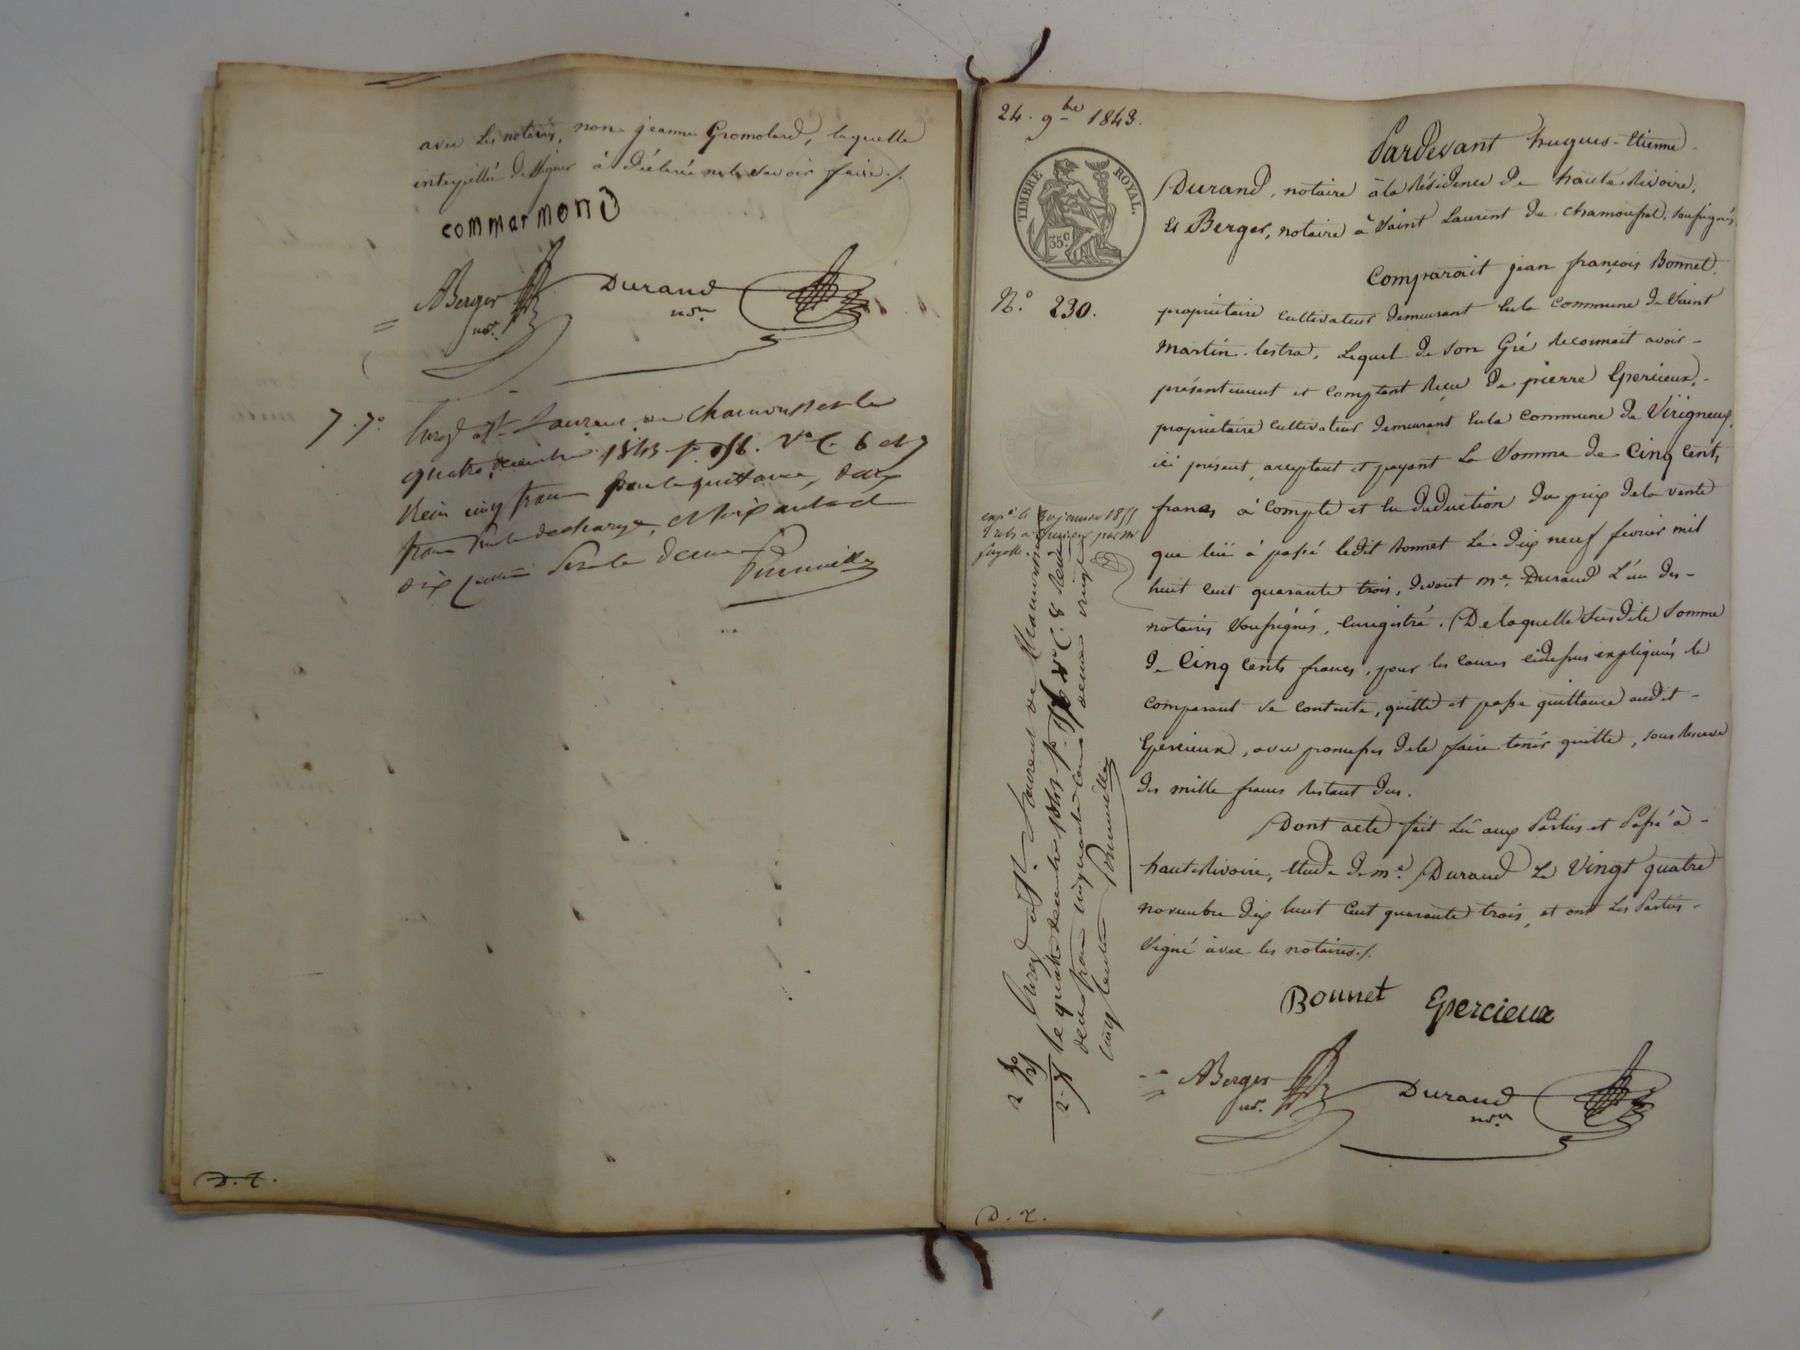 avec les notaires, non jeanne Gromolard, laquelle
interpellée de signer à déclaré ne le savoir faire./.
commarmond
ABerger
nre.
Durand
nre.
7.70
Enreg à St. Laurent de Chamousset le
quatre décembre 1843 fo. Vo. C. 6 et 7
Reçu cinq francs pour la quittance, deux
francs pour la décharge, et
dix
D. L.
24. 9bre 1843.
TIMBRE ROYAL.
35c
No. 230.
Pardevant hugues-Etienne
Durand, notaire à la Résidence de haute Rivoire,
Et Berger, notaire à Saint Laurent de chamousset, soussignés
Comparait jean françois Bonnet,
propriétaire cultivateur demeurant en la commune de Saint
Martin-lestra, Lequel de son Gré Reconnait avoir
présentement et comptant Reçu de pierre Epercieux,
propriétaire cultivateur demeurant en la commune de Virigneux,
ici présent, acceptant et payant La Somme de Cinq Cents
francs à compte et en déduction du prix de la vente
que lui à passé ledit bonnet Le dix neuf fevrier mil
huit cent quarante trois, devant me. Durand L'un des
notaires Soussignés, enregistré. De laquelle susdite Somme
de Cinq Cents francs, pour les causes cidessus expliquées le
comparant se contente, quitte et passe quittance audit
Epercieux, avec promesses de le faire tenir quitte, sous Reserve
des mille francs Restant dus.
Dont acte fait Lu aux Parties et Passé à
haute Rivoire, étude de me. Durand Le Vingt quatre
novembre dix huit cent quarante trois, et ont Les Parties
Signé avec les notaires./.
Bonnet Epercieux
ABerger
nre.
Durand
nre.
janvier 1855
Enreg à St. Laurent de Chamousset
le quatre décembre 1843 fo. Vo. C. 8 Reçu
deux francs cinquante centimes
vingt
cinq centimes
D. L.